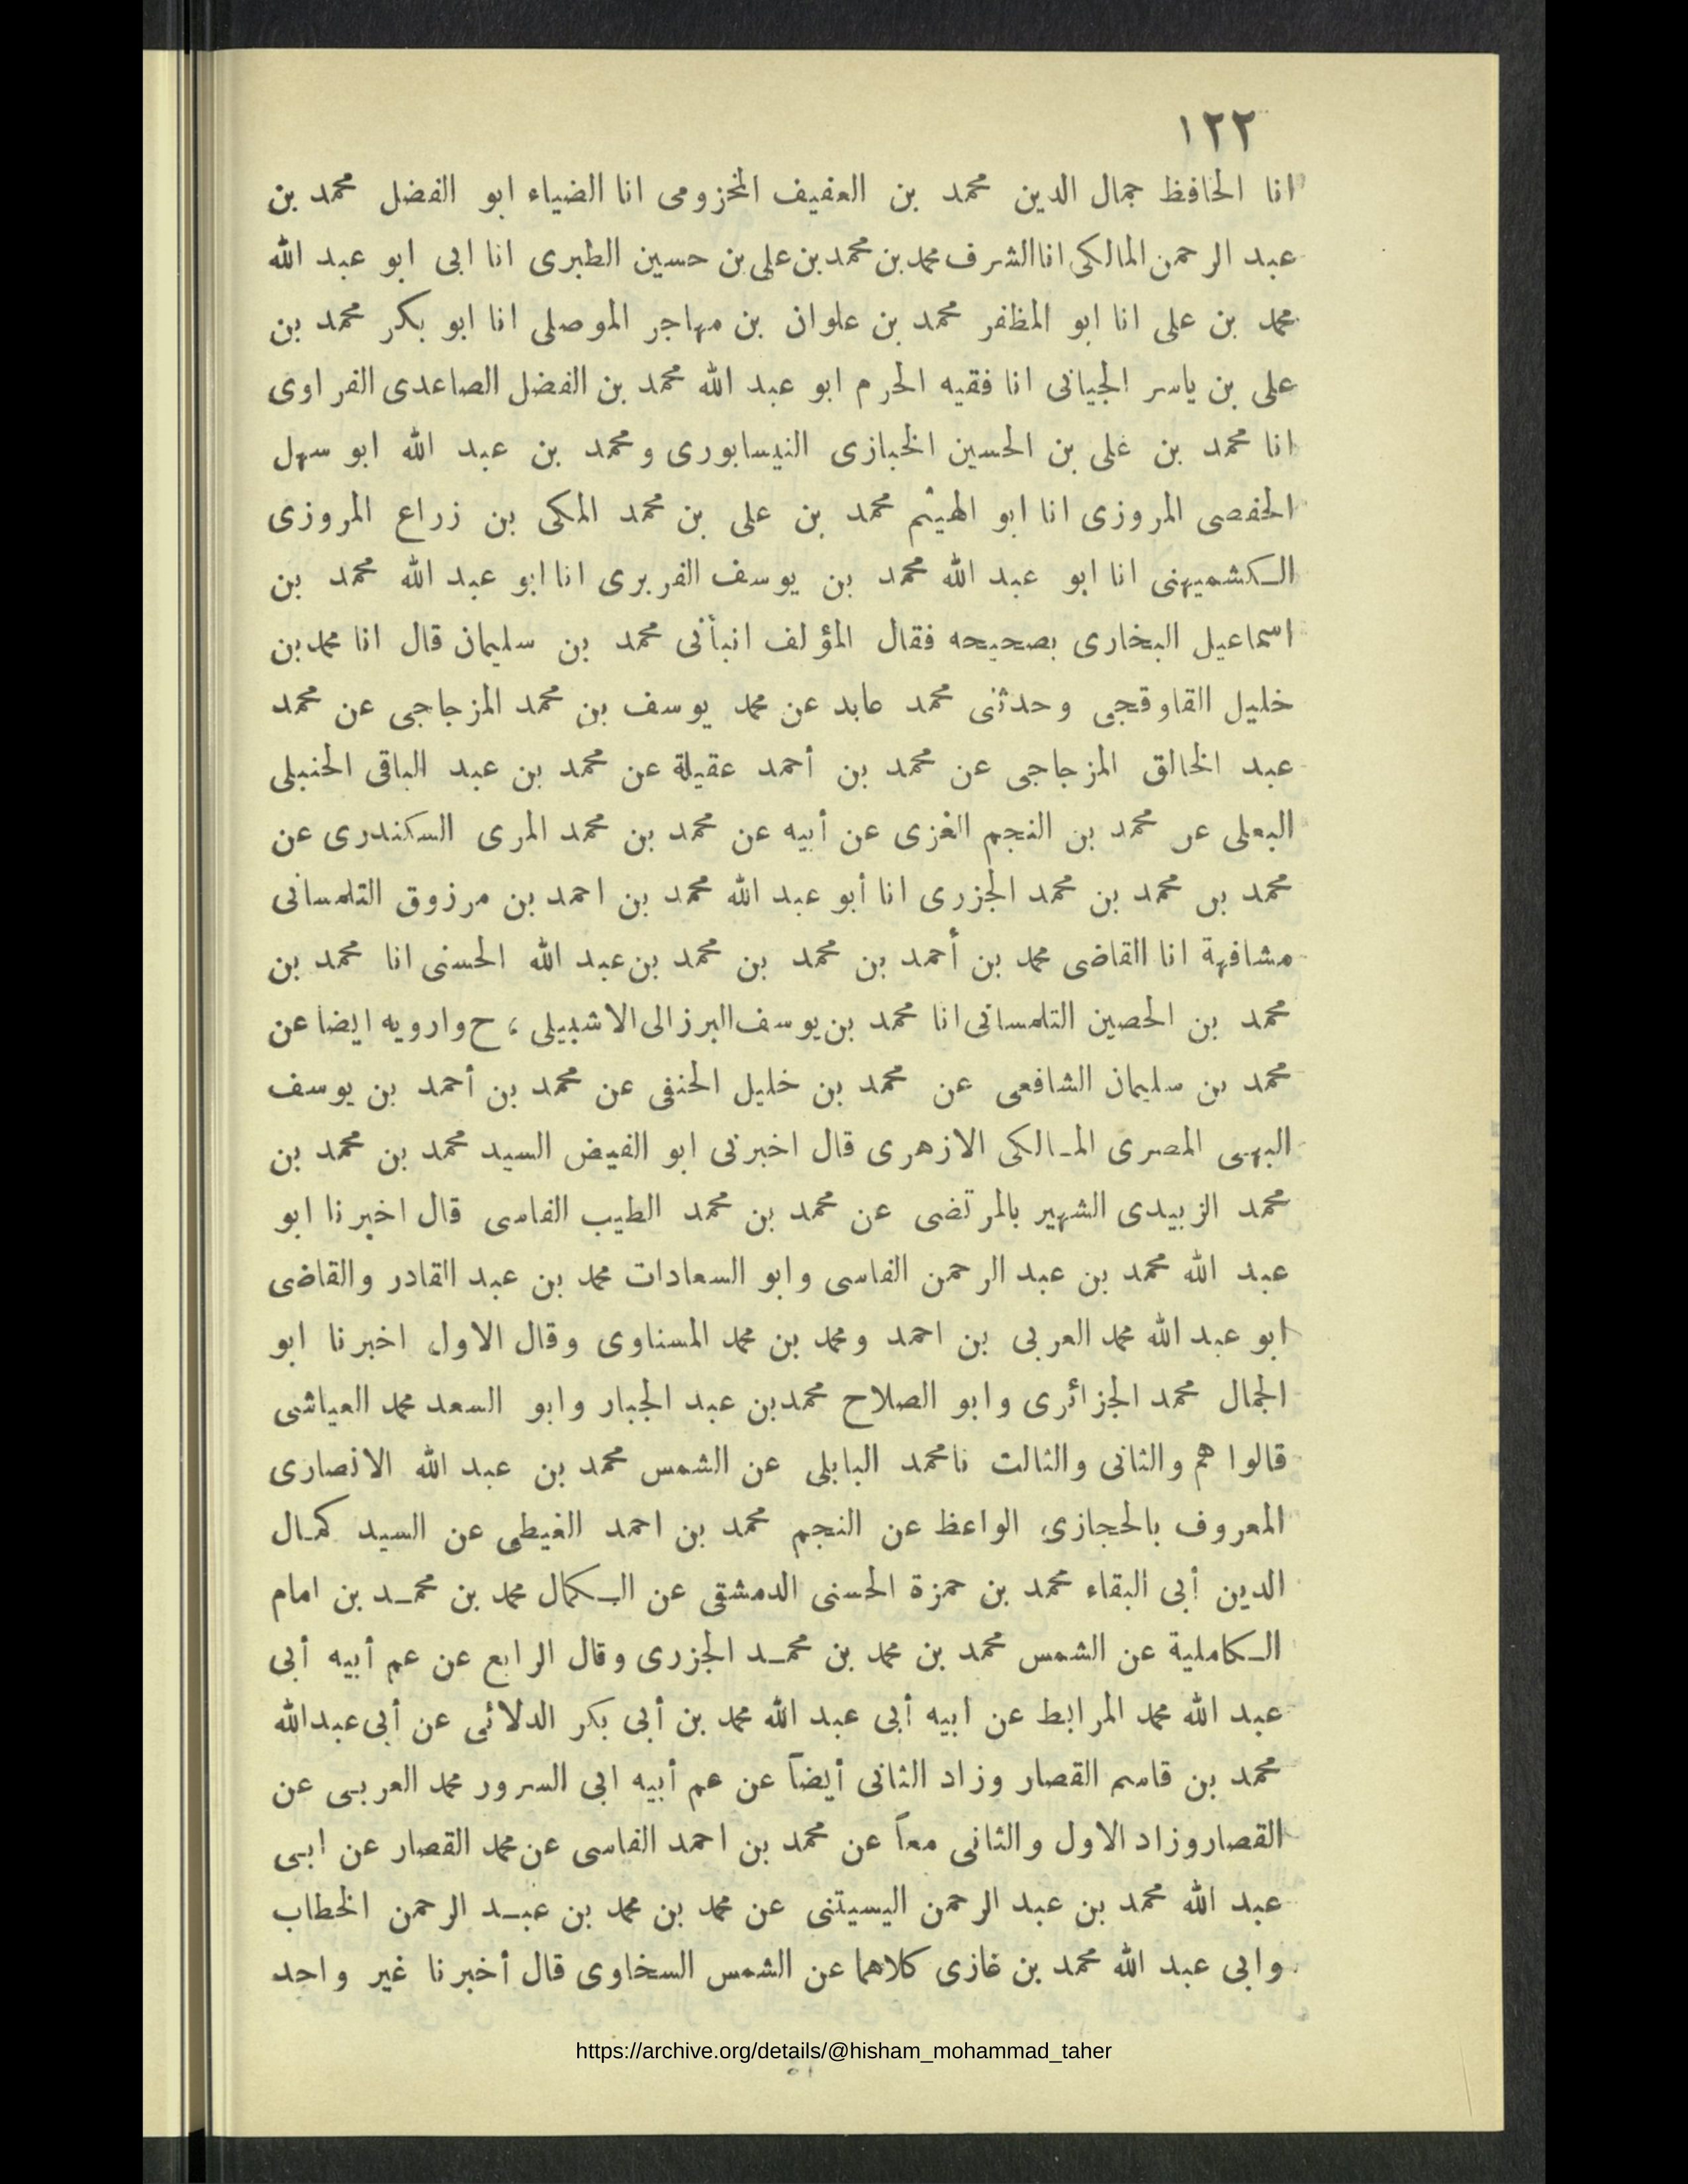 ١٢٢
انا الحافظ جمال الدين محمد بن العفيف المخزومى انا الضياء ابو الفضل محمد بن
عبد الرحمن المالكى انا الشرف محمد بن محمد بن على بن حسين الطبرى انا ابى ابو عبد الله
محمد بن على انا ابو المظفر محمد بن علوان بن مهاجر الموصلى انا ابو بكر محمد بن
على بن ياسر الجيانى انا فقيه الحرم ابو عبد الله محمد بن الفضل الصاعدى الفراوى
انا محمد بن على بن الحسين الخبازى النيسابورى ومحمد بن عبد الله ابو سهل
الحفصى المروزى انا ابو الهيثم محمد بن على بن محمد المكى بن زراع المروزى
الكشميهنى انا ابو عبد الله محمد بن يوسف الفربرى انا ابو عبد الله محمد بن
اسماعيل البخارى بصحيحه فقال المؤلف انبأنى محمد بن سليمان قال انا محمد بن
خليل القاوقجى وحدثنى محمد عابد عن محمد يوسف بن محمد المزجاجى عن محمد
عبد الخالق المزجاجى عن محمد بن أحمد عقيلة عن محمد بن عبد الباقى الحنبلى
البعلى عن محمد بن النجم الغزى عن أبيه عن محمد بن محمد المرى السكندرى عن
محمد بن محمد بن محمد الجزرى انا أبو عبد الله محمد بن احمد بن مرزوق التلمسانى
مشافهة انا القاضى محمد بن أحمد بن محمد بن محمد بن عبد الله الحسنى انا محمد بن
محمد بن الحصين التلمسانى انا محمد بن يوسف البرزالى الاشبيلى ، ح وارويه ايضا عن
محمد بن سليمان الشافعى عن محمد بن خليل الحنفى عن محمد بن أحمد بن يوسف
البهى المصرى المالكى الازهرى قال اخبرنى ابو الفيض السيد محمد بن محمد بن
محمد الزبيدى الشهير بالمرتضى عن محمد بن محمد الطيب الفاسى قال اخبرنا ابو
عبد الله محمد بن عبد الرحمن الفاسى وابو السعادات محمد بن عبد القادر والقاضى
ابو عبد الله محمد العربى بن احمد ومحمد بن محمد المسناوى وقال الاول اخبرنا ابو
الجمال محمد الجزائرى وابو الصلاح محمد بن عبد الجبار وابو السعد محمد العياشى
قالوا هم والثانى والثالث نا محمد البابلى عن الشمس محمد بن عبد الله الانصارى
المعروف بالحجازى الواعظ عن النجم محمد بن احمد الغيطى عن السيد كمال
الدين أبى البقاء محمد بن حمزة الحسنى الدمشقى عن الكمال محمد بن محمد بن امام
الكاملية عن الشمس محمد بن محمد بن محمد الجزرى وقال الرابع عن عم أبيه أبى
عبد الله محمد المرابط عن ابيه أبى عبد الله محمد بن أبى بكر الدلائى عن أبى عبدالله
محمد بن قاسم القصار وزاد الثانى أيضاً عن عم أبيه ابى السرور محمد العربى عن
القصار وزاد الاول والثانى معاً عن محمد بن احمد الفاسى عن محمد القصار عن ابى
عبد الله محمد بن عبد الرحمن اليسيتنى عن محمد بن محمد بن عبد الرحمن الخطاب
وابى عبد الله محمد بن غازى كلاهما عن الشمس السخاوى قال أخبرنا غير واحد
https://archive.org/details/@hisham_mohammad_taher